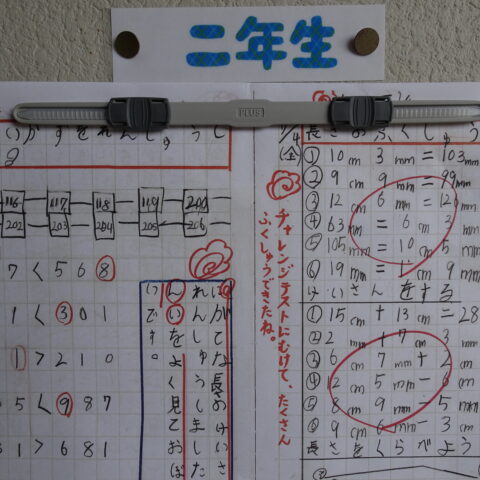 二年生
PLUS
かずをれんしゅうし
116 117 118 119 200
202 203 204 205 206
7 < 5 6 8
1 < 3 0 1
1 > 2 1 0
5 < 9 8 7
1 > 6 8 1
長さのけいさ
れんしゅうしました
んいをよく見ておぼ
いです。
11/4
(金)
チャレンジテストにむけて、たくさん
ふくしゅうできたね。
長さのふくしゅう
① 10 cm 3 mm = 103 mm
② 9 cm 9 mm = 99 mm
③ 12 cm 6 mm = 126 mm
④ 63 mm = 6 cm 3 mm
⑤ 105 mm = 10 cm 5 mm
⑥ 19 mm = 1 cm 9 mm
けいさんをする
① 15 cm + 13 cm = 28
② 2 mm + 7 cm 3
③ 6 cm 7 mm + 2
④ 12 cm 5 mm - 6 cm
⑤ 8 cm 9 mm - 5 mm
⑥ 9 cm 6 mm - 3 cm
長さをくらべよう